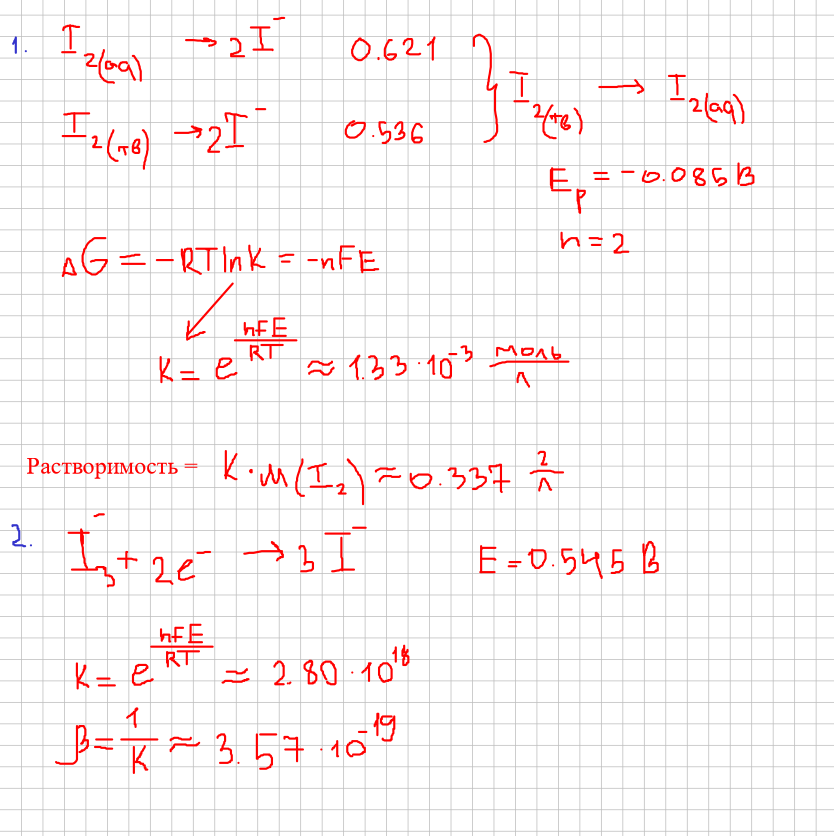 1. I₂(aq) → 2I⁻ 0.621
I₂(тв) → 2I⁻ 0.536
} I₂(тв) → I₂(aq)
Eₚ = -0.085 В
n = 2
ΔG = -RT lnK = -nFE
K = e^(nFE/RT) ≈ 1.33·10⁻³ моль/л
Растворимость = K·M(I₂) ≈ 0.337 г/л
2. I₃⁻ + 2e⁻ → 3I⁻ E = 0.545 В
K = e^(nFE/RT) ≈ 2.80·10¹⁸
β = 1/K ≈ 3.57·10⁻¹⁹